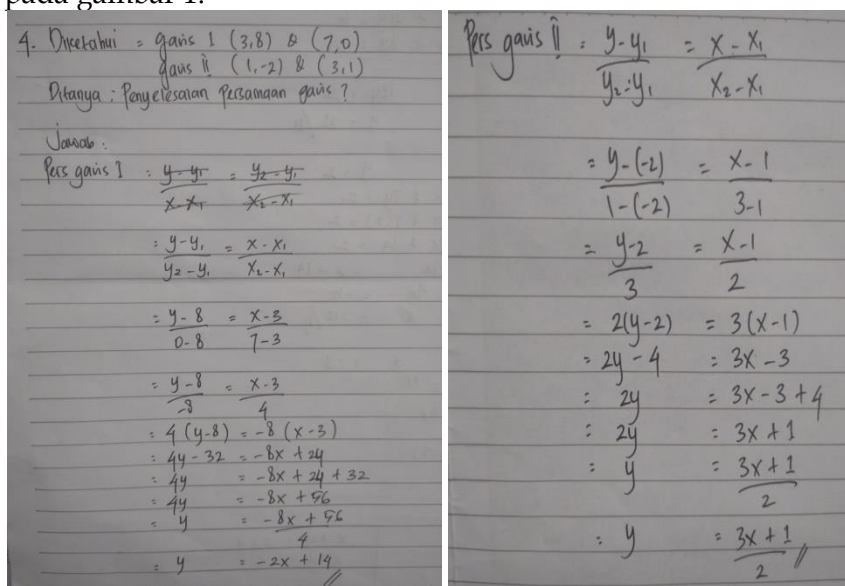 pada gambar 1.
4. Diketahui = garis 1 (3,8) & (7,0)
garis ii (1,-2) & (3,1)
Ditanya : Penyelesaian Persamaan garis ?
Jawab :
Pers garis 1 : y-y₁ / x-x₁ = y₂-y₁ / x₂-x₁
= y-y₁ / y₂-y₁ = x-x₁ / x₂-x₁
= y-8 / 0-8 = x-3 / 7-3
= y-8 / -8 = x-3 / 4
= 4 (y-8) = -8 (x-3)
= 4y - 32 = -8x + 24
= 4y = -8x + 24 + 32
= 4y = -8x + 56
= y = -8x + 56 / 4
= y = -2x + 14 //
Pers garis ii : y-y₁ / y₂-y₁ = x-x₁ / x₂-x₁
= y-(-2) / 1-(-2) = x-1 / 3-1
= y-2 / 3 = x-1 / 2
= 2(y-2) = 3(x-1)
= 2y - 4 = 3x - 3
: 2y = 3x - 3 + 4
: 2y = 3x + 1
: y = 3x + 1 / 2
: y = 3x + 1 / 2 //